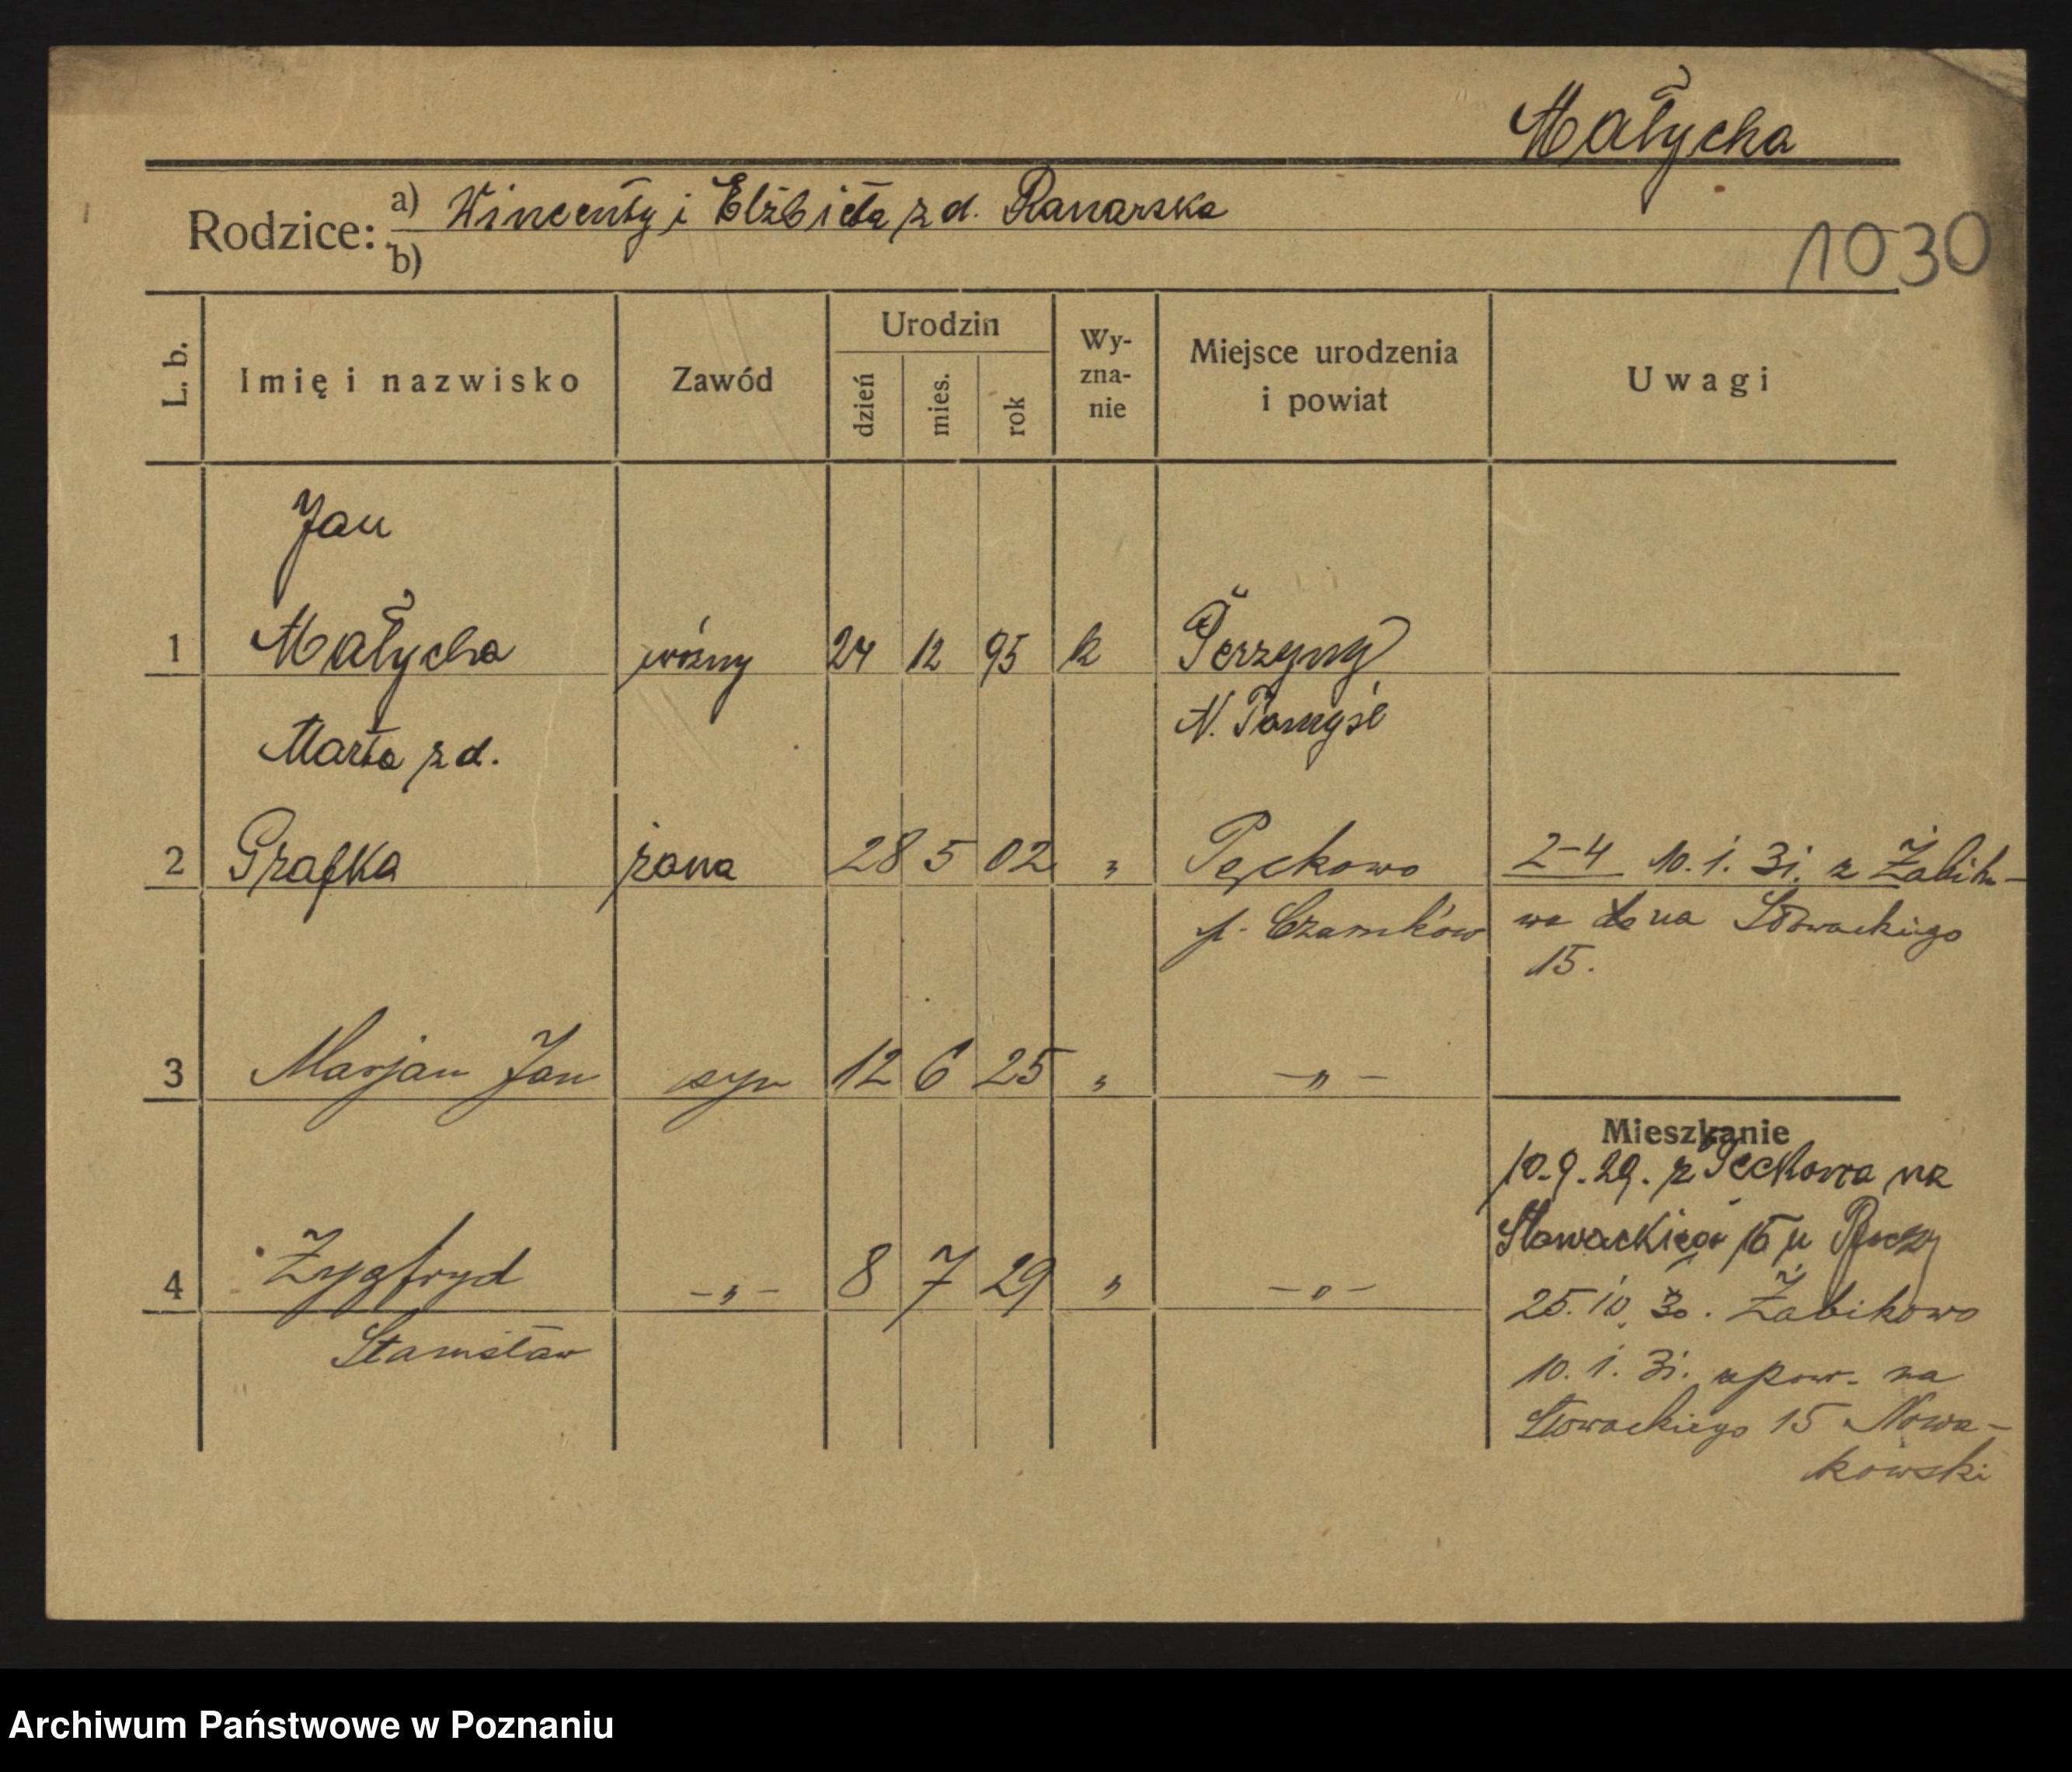 Małycha
Rodzice: a) Wincenty i Elżbieta z d. Ranarska
b)
1030
L. b. Imię i nazwisko Zawód Urodzin dzień mies. rok Wy-zna-nie Miejsce urodzenia i powiat Uwagi
Jan
1 Małycha woźny 24 12 95 k Perzyny
N. Tomyśl
Marta z d.
2 Grafka żona 28 5 02 " Pęckowo 2-4 10.1.31. z Żabiko-
p. Czarnków wa na Słowackiego
15.
3 Marjan Jan syn 12 6 25 " -"-
Mieszkanie
10.9.29. z Peckowa na
Słowackiego 15 u
4 Zygfryd -"- 8 7 29 " -"-
25.10.30. Żabikowo
Stanisław
10.1.31. spow. na
Słowackiego 15 Nowa-
kowski
Archiwum Państwowe w Poznaniu